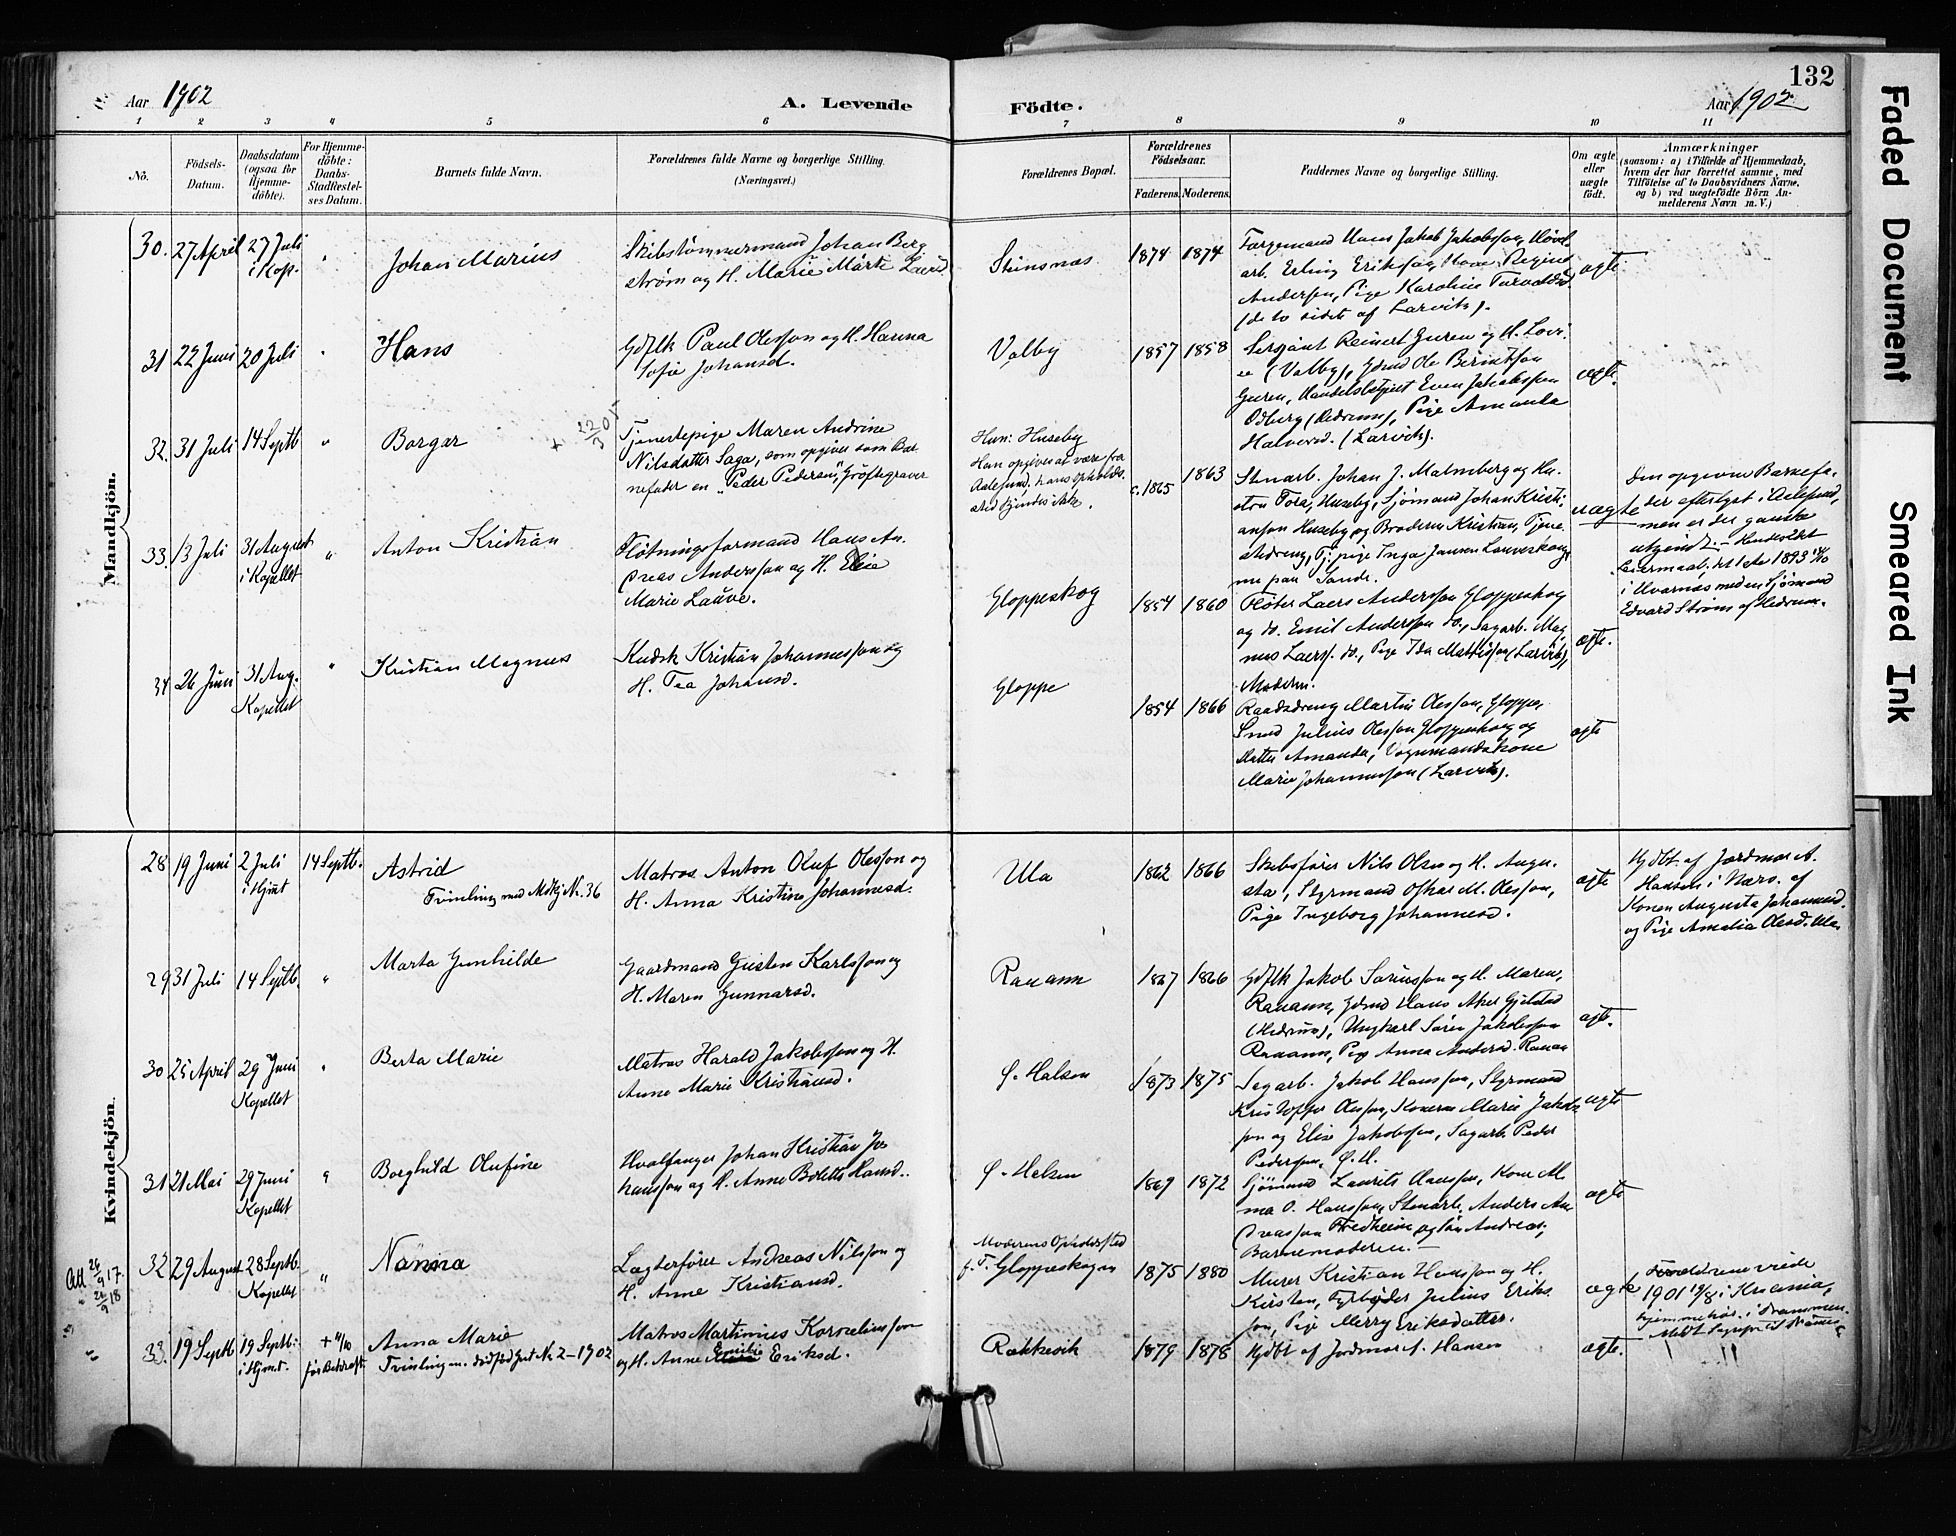 Aar 1902
A. Levende
Födte.
132
Aar 1902
1 2 3 4 5 6 7 8 9 10 11
No.
Födsels-
Datum.
Daabsdatum
(ogsaa for
Hjemme-
döbte).
For Hjemme-
döbte:
Daabs-
Stadfæstel-
ses Datum.
Barnets fulde Navn.
Forældrenes fulde Navne og borgerlige Stilling.
(Næringsvei.)
Forældrenes Bopæl.
Forældrenes
Födselsaar.
Faderens. Moderens.
Faddernes Navne og borgerlige Stilling.
Om ægte
eller
uægte
födt.
Anmærkninger
(saasom: a) i Tilfælde af Hjemmedaab,
hvem der har forrettet samme, med
Tilföielse af to Daabsvidners Navne,
og b) ved uægtefödte Börn An-
melderens Navn m. V.)
Mandkjön.
30. 27 April 27 Juli
i Kap. "
Johan Marius
Skibstømmermand Johan Berg
strøm og H. Marie
Stensnæs
1874 1874
Færgemand Hans Jakob Jakobsson, Høvl
arb. Erling Eriksson, Regine
Andersen, Pige Karoline
(de to sidste af Larvik).
ægte
31 22 Juni 20 Juli "
Hans
Gdflk Paul Olesson og H. Hanna
Sofie Johansd.
Valby
1857 1858
Sersjant Reinert Guren og H. Lovi-
se (Valby), Gdmd Ole Berntson
Guren, Handelsbetjent Even Jakobsson
Odberg (Hedrum), Pige Amanda
Halvorsd. (Larvik).
ægte.
32. 31 Juli 14 Septb "
Borgar
+ 22/3 05
Tjenestepige Maren Andrine
Nilsdatter Saga, som opgiver som Bar-
nefader en "Peder Pedersen", Grøftegraver
Hun: Huseby
Han opgives at være fra
Aalesund. Hans Opholds-
sted kjendes ikke.
c. 1865 1863
Stenarb. Johan J. Malmberg og Hu-
stru Tora, Huseby, Sjømand Johan Kristi-
anson Huseby og Broderen Kristian, Tjene-
stedreng, Tj.pige Inga Jansen
paa Sande.
uægte
Den opgivne Barnefa-
der efterlyst i Aalesund,
men er der ganske
ukjendt. – Kvindekts
Leiermaal, det 1ste 1893
i Hvarnes med en Sjømand
Edvard Strøm af Hedrum.
33. 13 Juli 31 August
i Kapellet "
Anton Kristian
Fløtningsformand Hans An-
dreas Andersson og H. Elise
Marie Lauve.
Gloppeskog
1854 1860
Fløter Laers Andersson Gloppeskog
og do. Emil Andersson do., Sagarb. Mag
nus Laerss. do., Pige Ida Mattisson (Larvik),
Moderen.
ægte.
34 26 Juni 31 Aug.
Kapellet "
Kristian Magnus
Kudsk Kristian Johannesson og
H. Tea Johansd.
Gloppe
1854 1866
Raadsdreng Martin Olesson, Gloppe,
Smed Julius Olesson Gloppeskog og
Mette Amanda, Vognmandskone
Marie Johannesson (Larvik).
ægte
Kvindekjön.
28 19 Juni 2 Juli
i Hjmt 14 Septb.
Astrid
Tvinling med Mdkj Nr. 36
Matros Anton Oluf Olesson og
H. Anna Kristine Johannesd.
Ula
1862 1866
Skibsfører Nils Olsen og H. Augu-
sta, Styrmand Oskar M. Olesson,
Pige Ingeborg Johannesd.
ægte
Hjdbt. af Jordmor A.
Hansen i Nærv. af
Konen Augusta Johannesd.
og Pige Amalia Olesd. Ula.
29 31 Juli 14 Septb. "
Marta Gunhilde
Gaardmand Gusten Karlsson og
H. Maren Gunnarsd.
Rauann
1867 1866
Gdflk Jakob Sørensson og H. Maren,
Rauann, Gdmd Hans Aker Gjelstad
(Hedrum), Ungkarl Søren Jakobsson
Rauann, Pige Anna Andersd. Rauan
ægte.
30 25 April 29 Juni
Kapellet "
Berta Marie
Matros Harald Jakobsson og H.
Anne Marie Kristiansd.
Ø. Halsen
1873 1875
Sagarb. Jakob Hansson, Styrmand
Kristoffer Olesson, Konerne Marie Jakobs
son og Elise Jakobsson, Sagarb. Peder
Pedersen, Ø. H.
ægte
31 21 Mai 29 Juni
Kapellet "
Borghild Olufine
Hvalfanger Johan Kristian Jo-
hansson og H. Anne Bolette Hansd.
Ø. Halsen
1869 1872
Sjømand Laurits Hansson, Kone Al-
ma O. Hansson, Stenarb. Anders An-
dreasson Fredheim og Søn Andreas,
Barnemoderen.
ægte
Att 26/9 17.
" 26/9 18
32 29 August 28 Septb.
Kapellet "
Nanna
Lagterfører Andreas Nilsson og
H. Anne Kristiansd.
Moderens Opholdssted
f. T. Gloppeskogen
1875 1880
Murer Kristian Hansson og H.
Kirsten, Fyrbøder Julius Eriks
son, Pige Merry Eriksdatter.
ægte
Forældrene viede
1901 i Kristiania,
hjemmehør. i Drammen.
33. 19 Septb 19 Septb.
i Hjmt. + 4/10
før Bekræft
Anna Marie
Tvinling m. dødfød Gut Nr. 2 – 1902
Matros Martinius Korneliusson
og H. Anne Emilie Eriksd.
Rækkevik
1879 1878
Hjdbt af Jordmor A. Hansen
ægte.
Faded Document
Smeared Ink